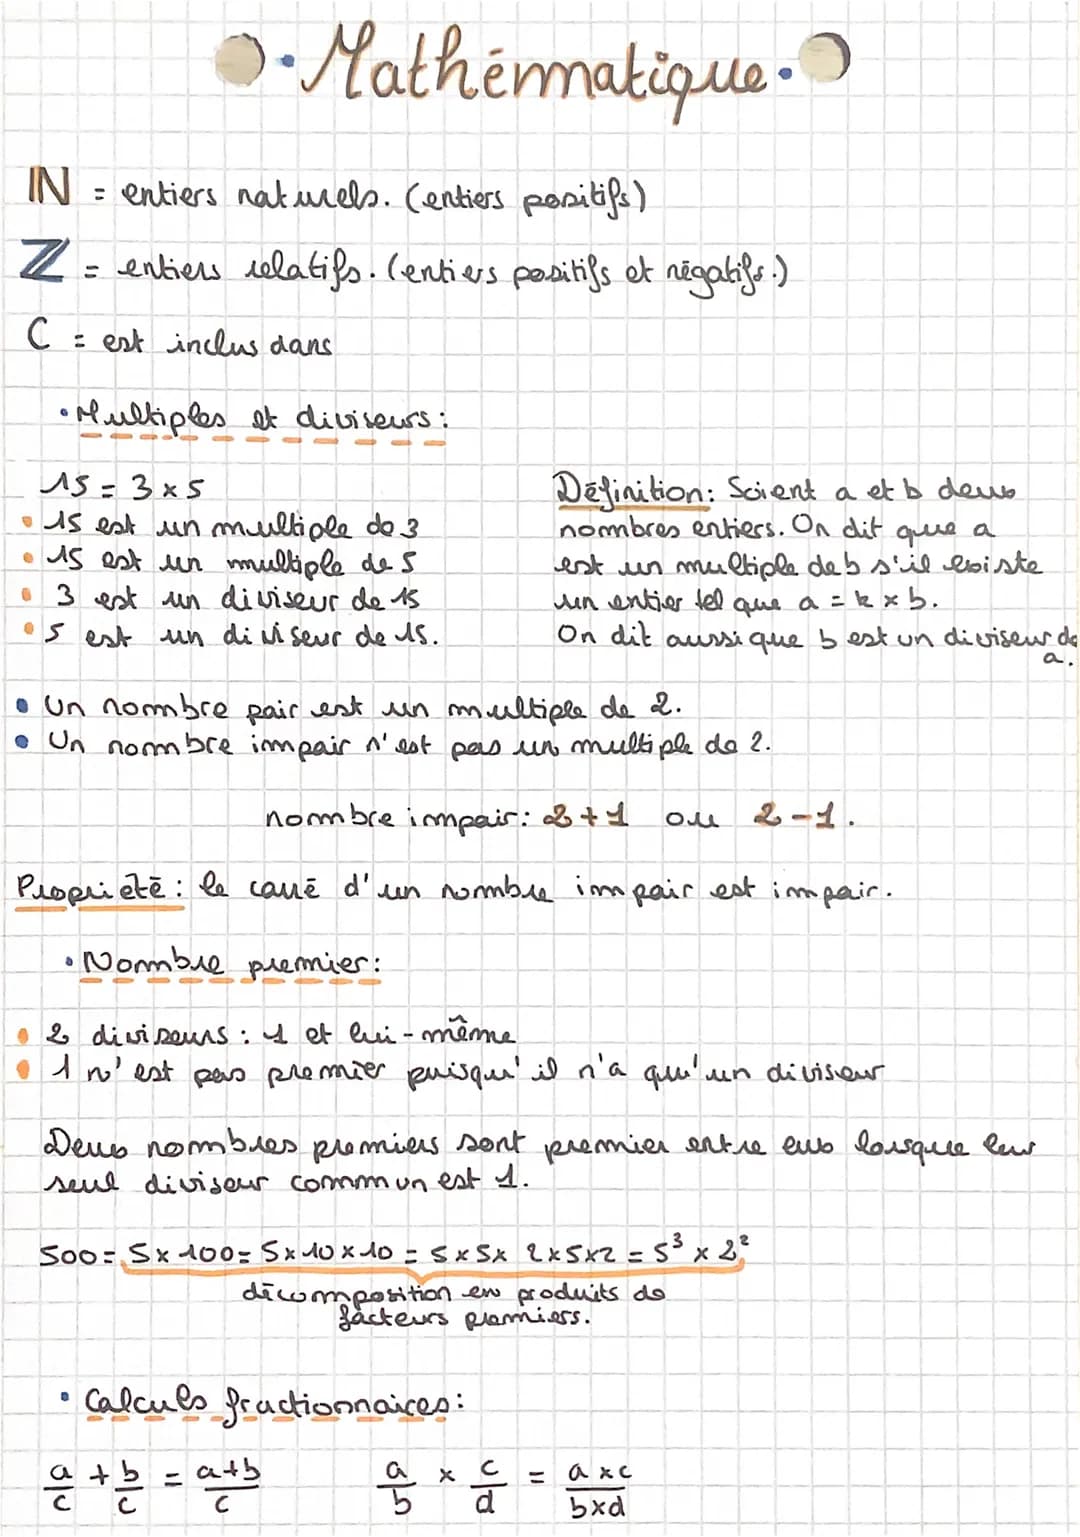 Mathématique
ℕ = entiers naturels. (entiers positifs)
ℤ = entiers relatifs. (entiers positifs et négatifs.)
⊂ = est inclus dans
• Multiples et diviseurs :
15 = 3 x 5
• 15 est un multiple de 3
• 15 est un multiple de 5
• 3 est un diviseur de 15
• 5 est un diviseur de 15.
Définition : Soient a et b deux
nombres entiers. On dit que a
est un multiple de b s'il existe
un entier tel que a = k x b.
On dit aussi que b est un diviseur de
a.
• Un nombre pair est un multiple de 2.
• Un nombre impair n'est pas un multiple de 2.
nombre impair : 2+1 ou 2-1.
Propriété : le carré d'un nombre impair est impair.
• Nombre premier :
• 2 diviseurs : 1 et lui-même
• 1 n'est pas premier puisqu'il n'a qu'un diviseur
Deux nombres premiers sont premier entre eux lorsque leur
seul diviseur commun est 1.
500 = 5 x 100 = 5 x 10 x 10 = 5 x 5 x 2 x 5 x 2 = 5³ x 2²
décomposition en produits de
facteurs premiers.
• Calculs fractionnaires :
a/c + b/c = a+b/c    a/b x c/d = a x c/b x d